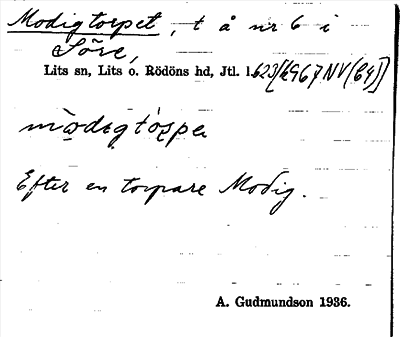 Modigtorpet, t å nr 6 i
Söre,
Lits sn, Lits o. Rödöns hd, Jtl. l.
mòdıgtórpe
Efter en torpare Modig.
A. Gudmundson 1936.